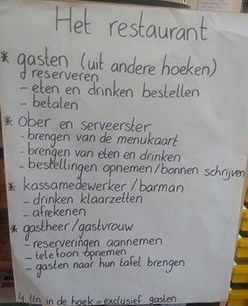 Het restaurant
* gasten (uit andere hoeken)
- reserveren
- eten en drinken bestellen
- betalen
* ober en serveerster
- brengen van de menukaart
- brengen van eten en drinken
- bestellingen opnemen/bonnen schrijven
* kassamedewerker/barman
- drinken klaarzetten
- afrekenen
* gastheer/gastvrouw
- reserveringen aannemen
- telefoon opnemen
- gasten naar hun tafel brengen
4 lln in de hoek = exclusief gasten